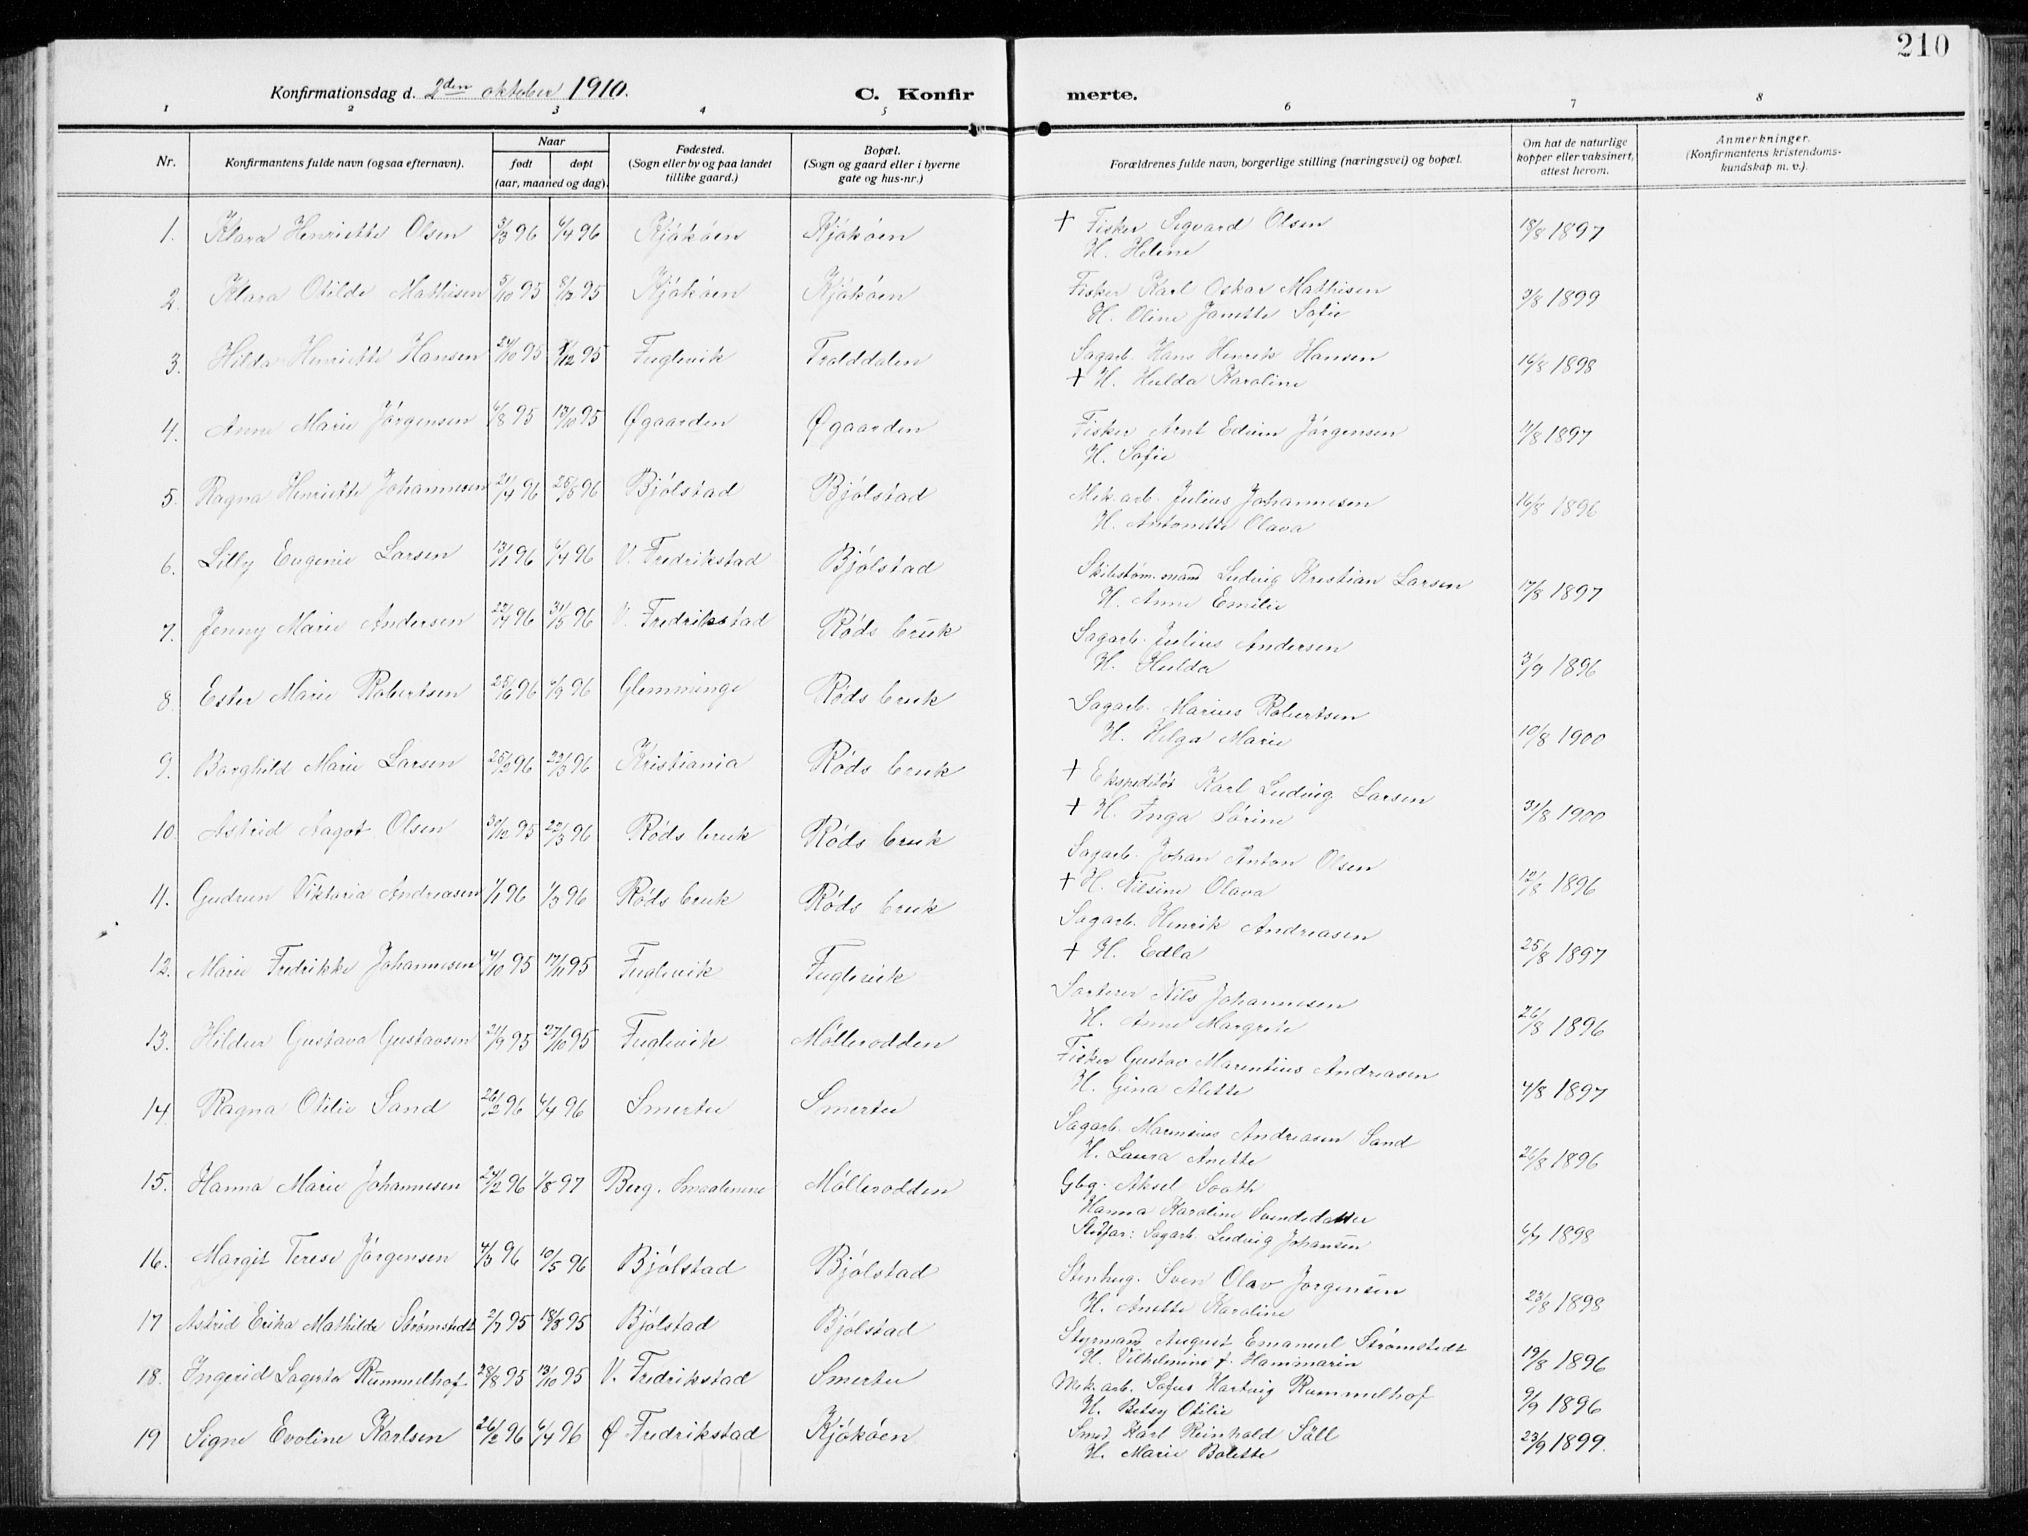 210
Konfirmationsdag d. 2den oktober 1910. C. Konfir merte.
1 2 3 4 5 6 7 8
Nr. Konfirmantens fulde navn (ogsaa efternavn). Naar født døpt (aar, maaned og dag). Fødested. (Sogn eller by og paa landet tillike gaard.) Bopæl. (Sogn og gaard eller i byerne gate og hus-nr.) Forældrenes fulde navn, borgerlige stilling (næringsvei) og bopæl. Om hat de naturlige kopper eller vaksinert, attest herom. Anmerkninger. (Konfirmantens kristendoms-kundskap m. v.).
1. Klara Henriette Olsen 3/3 96 6/4 96 Kjøkøen Kjøkøen † Fisker Sigvard Olsen 18/8 1897
H. Helene
2. Klara Otilde Mathisen 5/10 95 8/12 95 Kjøkøen Kjøkøen Fisker Karl Oskar Mathisen 3/8 1899
H. Oline Janette Sofie
3. Hilda Henriette Hansen 24/10 95 /12 95 Fuglevik Tralddalen Sagarb. Hans Henrik Hansen 16/8 1898
† H. Hulda Karoline
4. Anne Marie Jørgensen 6/8 95 13/10 95 Øgaarden Øgaarden Fisker Arnt Edvin Jørgensen 11/8 1897
H. Sofie
5. Ragna Henriette Johannesen 21/4 96 25/5 96 Bjølstad Bjølstad Mek. arb. Julius Johannesen 16/8 1896
H. Antonette Olava
6. Lilly Eugenie Larsen 13/1 96 6/4 96 V. Fredrikstad Bjølstad Skibstøm.mand Ludvig Kristian Larsen 17/8 1897
H. Anne Emilie
7. Jenny Marie Andersen 22/4 96 31/5 96 V. Fredrikstad Røds bruk Sagarb. Julius Andersen 3/9 1896
H. Hulda
8. Ester Marie Robertsen 25/6 96 6/9 96 Glemminge Røds bruk Sagarb. Marius Robertsen 10/8 1900
H. Helga Marie
9. Borghild Marie Larsen 25/2 96 22/3 96 Kristiania Røds bruk † Ekspeditør Karl Ludvig Larsen 31/8 1900
† H. Inga Sørine
10. Astrid Aagot Olsen 30/12 95 22/3 96 Røds bruk Røds bruk Sagarb. Johan Anton Olsen 12/8 1896
† H. Nilsine Olava
11. Gudrun Viktoria Andreasen 1/1 96 1/3 96 Røds bruk Røds bruk Sagarb. Henrik Andreasen 25/8 1897
† H. Edla
12. Marie Fredrikke Johannesen 4/10 95 17/11 95 Fuglevik Fuglevik Sorterer Nils Johannesen 26/8 1896
H. Anne Margrete
13. Hildur Gustava Gustavsen 21/9 95 27/10 95 Fuglevik Møllerodden Fisker Gustav Marentius Andreasen 4/8 1897
H. Gina Alette
14. Ragna Otilie Sand 26/2 96 6/4 96 Smertu Smertu Sagarb. Marensius Andreasen Sand 26/8 1896
H. Laura Anette
15. Hanna Marie Johannesen 24/12 96 1/8 97 Berg. Smaalenene Møllerodden Gbg. Aksel Sooth
Hanna Karoline Svendsdatter
Stedfar: Sagarb. Ludvig Johansen 6/7 1898
16. Margit Terese Jørgensen 4/3 96 10/5 96 Bjølstad Bjølstad Stenhug. Sven Olav Jørgensen 23/8 1898
H. Anette Karoline
17 Astrid Erika Mathilde Strømstedt 2/7 95 18/8 95 Bjølstad Bjølstad Styrmand August Emanuel Strømstedt 19/8 1896
H. Vilhelmine f. Hammarin
18. Ingerid Lagerta Rummelhof 28/8 95 13/10 95 V. Fredrikstad Smertu Mek. arb. Sofus Hartvig Rummelhof 9/9 1896
H. Betsy Otilie
19 Signe Evoline Karlsen 26/2 96 6/4 96 Ø Fredrikstad Kjøkøen Smed Karl Reinhold Säll 23/9 1899.
H. Marie Bolette